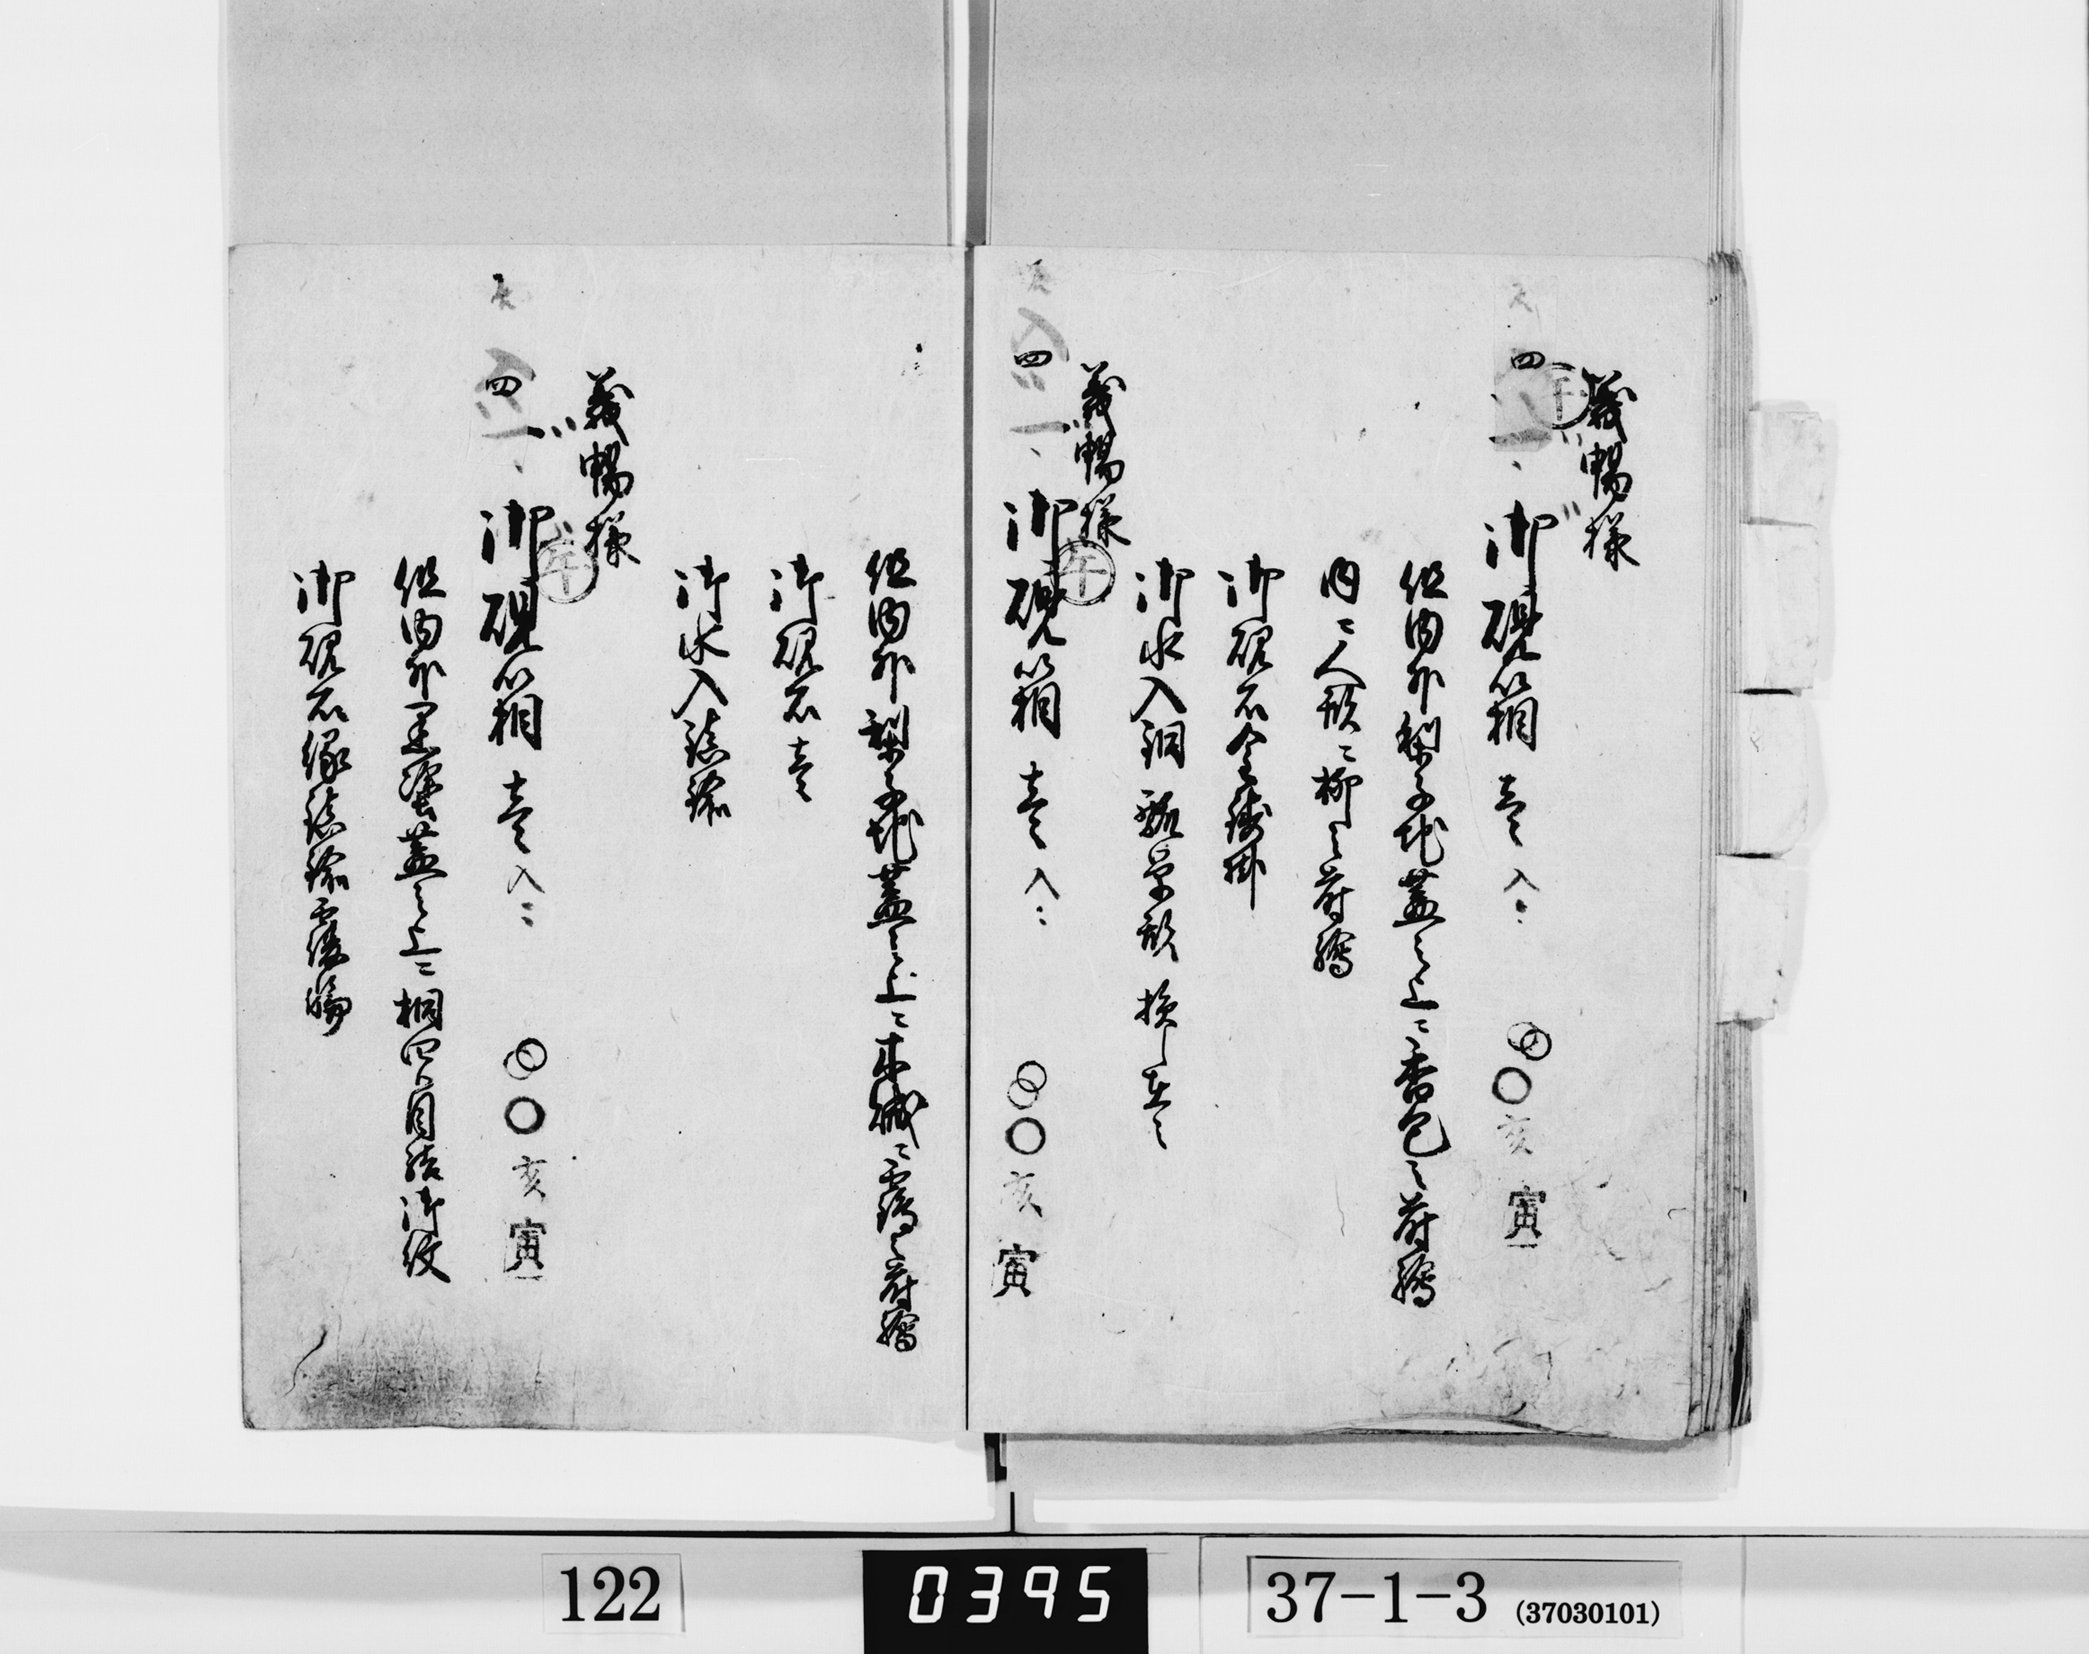 義暢様
四
一、御硯箱 壱 入ニ
亥 寅
但内外梨子地蓋之上ニ香包之蒔絵
内ニ人形ニ柳之蒔絵
御硯石金錢掛
御水入銅瓢箪形 損し在之
義暢様
午
四
一、御硯箱 壱 入ニ
亥 寅
但内外梨子地蓋之上ニ 之蒔絵
御硯石 壱
御水入鍮鍮
義暢様
午
四
一、御硯箱 壱 入ニ
亥 寅
但内外黒塗蓋之上ニ桐四目結御紋
御硯石縁
122
0395
37-1-3 (37030101)